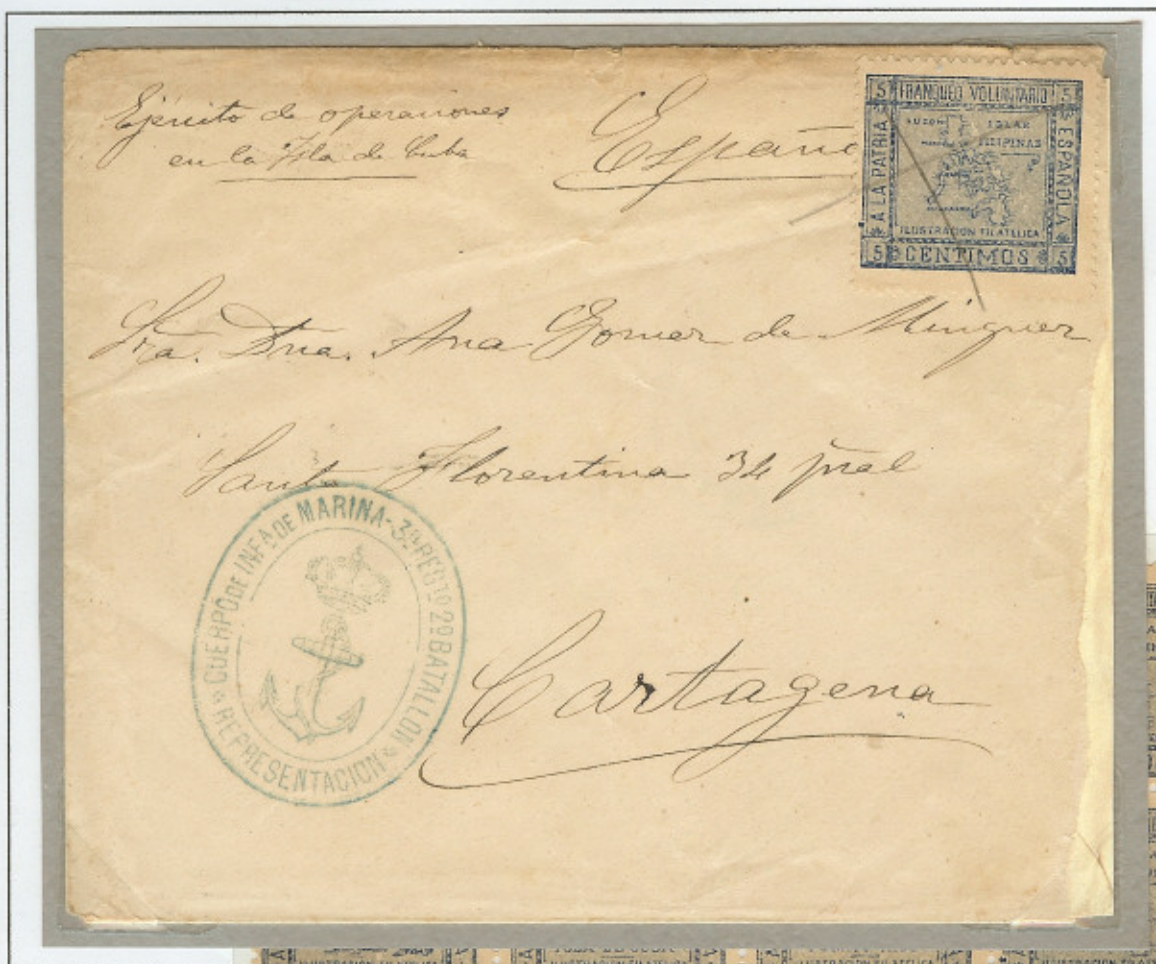 Ejército de operaciones
en la Isla de Cuba
España
5 FRANQUEO VOLUNTARIO 5
A LA PATRIA
ESPAÑOLA
LUZON ISLAS
FILIPINAS
ILUSTRACION FILATELICA
5 CENTIMOS 5
Sra. Dña. Ana Gomez de Minguez
Santa Florentina 34 pral
CUERPO DE INFA DE MARINA - 3er REGTO 2º BATALLON
REPRESENTACION
Cartagena
ISLA DE CUBA
ILUSTRACION FILATELICA